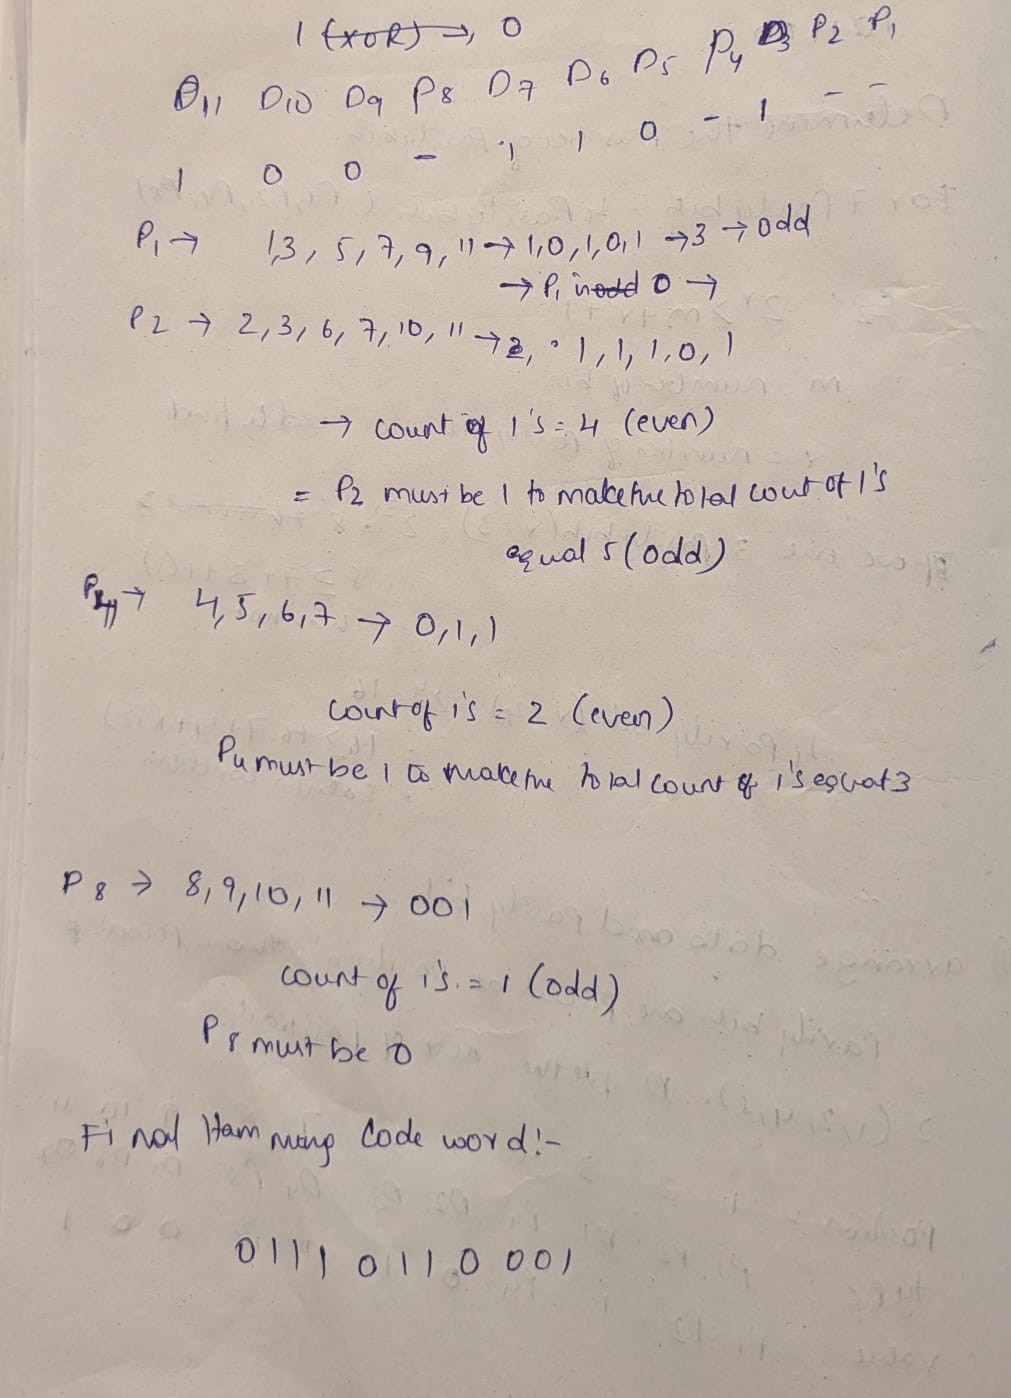 1 (XOR) → 0
D11 D10 D9 P8 D7 D6 D5 P4 D3 P2 P1
1 0 0 - 1 1 0 - 1 - -
P1 → 1,3, 5, 7, 9, 11 → 1,0,1,0,1 → 3 → odd
→ P1 0 →
P2 → 2,3,6,7,10,11 → 1,1,1,0,1
→ count of 1's = 4 (even)
= P2 must be 1 to make the total count of 1's
equal 5 (odd)
P4 → 4,5,6,7 → 0,1,1
count of 1's = 2 (even)
P4 must be 1 to make the total count of 1's equal 3
P8 → 8,9,10,11 → 001
count of 1's = 1 (odd)
P8 must be 0
Final Hamming Code word:-
01110110001